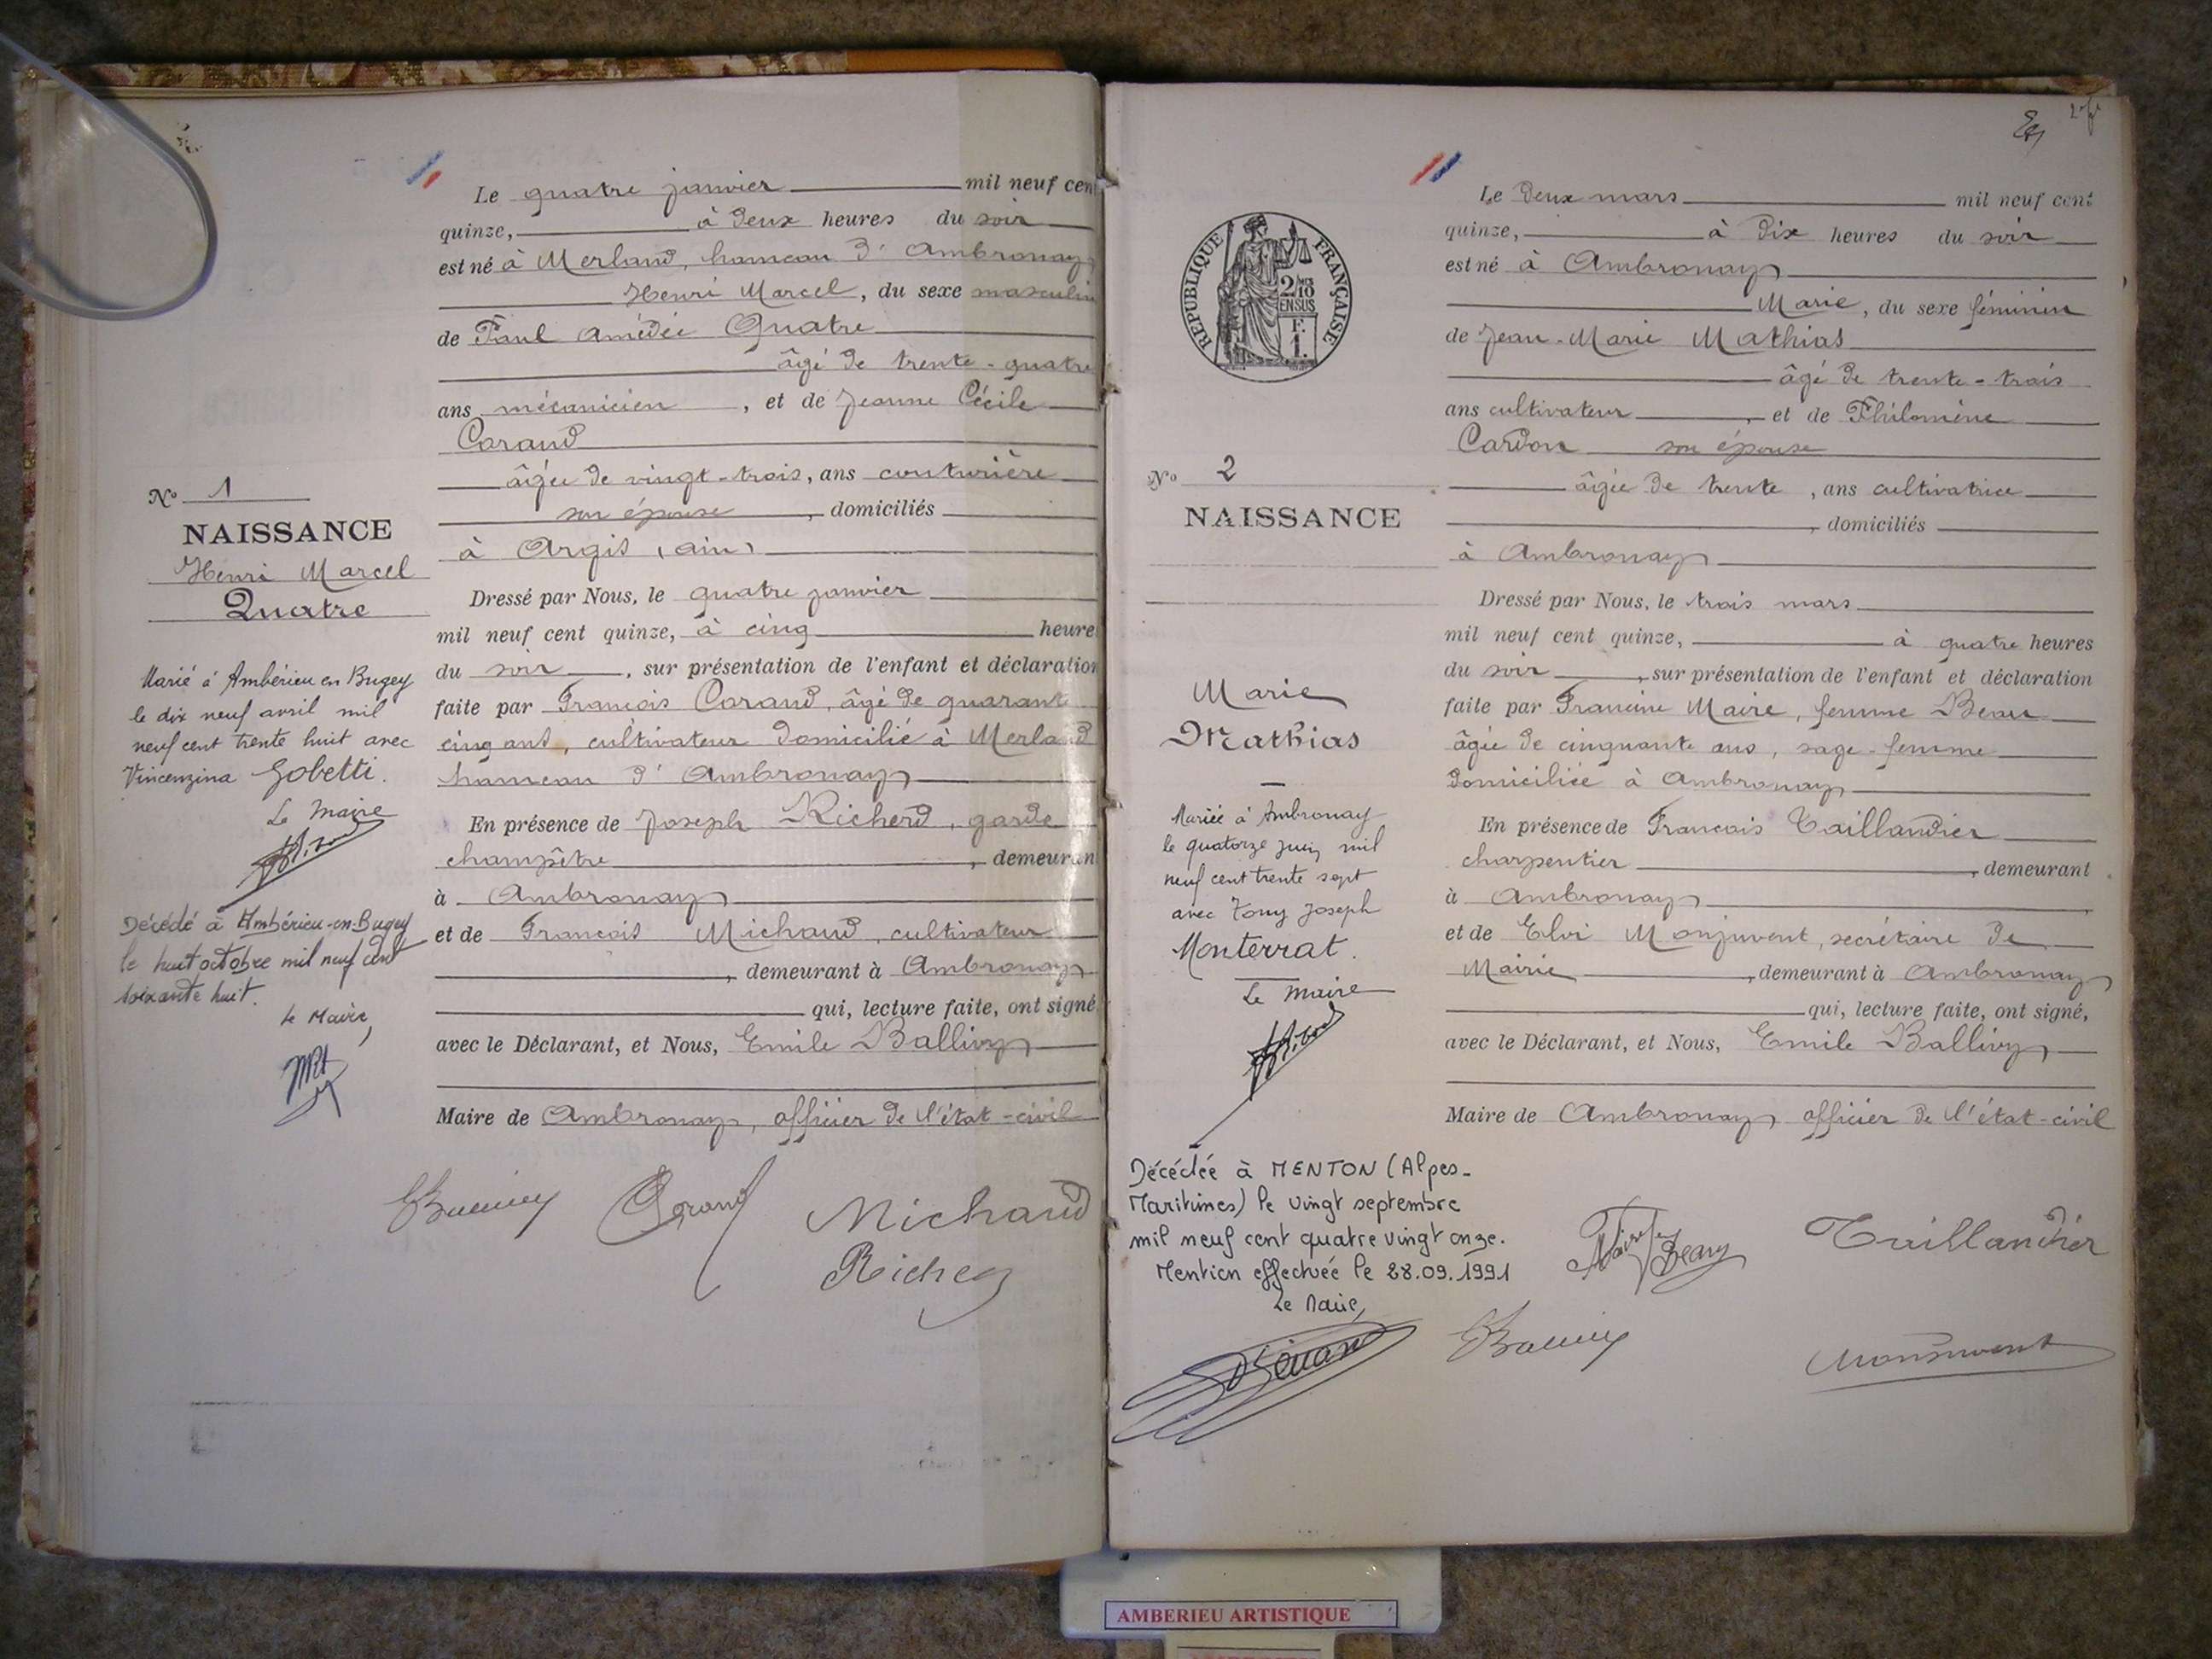 Le quatre janvier mil neuf cen
quinze, à deux heures du soir
est né à Merland, hameau d'Ambronay
Henri Marcel, du sexe masculin
de Paul Amédée Quatre
âgé de trente-quatre
ans mécanicien, et de Jeanne Cécile
Corand
âgée de vingt-trois, ans couturière
son épouse, domiciliés
à Argis (ain)
Dressé par Nous, le quatre janvier
mil neuf cent quinze, à cinq heure
du soir, sur présentation de l'enfant et déclaration
faite par François Corand, âgé de quarante
cinq ans, cultivateur domicilié à Merland
hameau d'Ambronay
En présence de Joseph Richerd, garde
champêtre, demeuran
à Ambronay
et de François Michaud, cultivateur
, demeurant à Ambronay
qui, lecture faite, ont signé
avec le Déclarant, et Nous, Emile Ballivy
Maire de Ambronay, officier de l'état-civil
Michaud
No 1
NAISSANCE
Henri Marcel
Quatre
Marié à Ambérieu en Bugey
le dix neuf avril mil
neuf cent trente huit avec
Vincenzina Gobetti.
Le Maire
Décédé à Ambérieu-en-Bugey
le huit octobre mil neuf cent
soixante huit.
Le Maire,
2
Le deux mars mil neuf cent
quinze, à dix heures du soir
est né à Ambronay
Marie, du sexe féminin
de Jean-Marie Mathias
âgé de trente-trois
ans cultivateur, et de Philomène
Cardon son épouse
âgée de trente, ans cultivatrice
, domiciliés
à Ambronay
Dressé par Nous, le trois mars
mil neuf cent quinze, à quatre heures
du soir, sur présentation de l'enfant et déclaration
faite par Francine Maire, femme Beau
âgée de cinquante ans, sage-femme
domiciliée à Ambronay
En présence de François Taillandier
charpentier, demeurant
à Ambronay
et de Eloi Monjuvent, secrétaire de
Mairie, demeurant à Ambronay
qui, lecture faite, ont signé,
avec le Déclarant, et Nous, Emile Ballivy
Maire de Ambronay officier de l'état-civil
Taillandier
Monjuvent
RÉPUBLIQUE FRANÇAISE
2/10
EN SUS
F.
1.
No 2
NAISSANCE
Marie
Mathias
Mariée à Ambronay
le quatorze juin mil
neuf cent trente sept
avec Tony Joseph
Monterrat.
Le Maire
Décédée à MENTON (Alpes-
Maritimes) le vingt septembre
mil neuf cent quatre vingt onze.
Mention effectuée le 28.09.1991
Le Maire,
AMBERIEU ARTISTIQUE